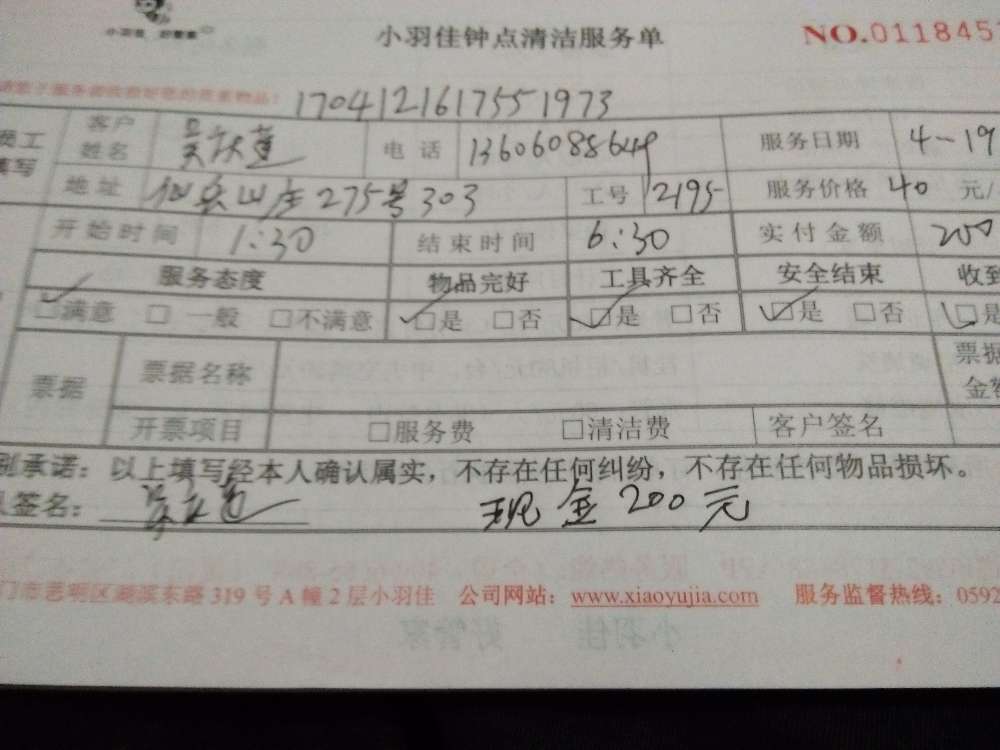 小羽佳 好管家
小羽佳钟点清洁服务单
NO.011845
1704121617551973
员工填写 客户姓名 电话 13606088649 服务日期 4-19
地址 仙岳山庄275号303 工号 2195 服务价格 40 元/
开始时间 1:30 结束时间 6:30 实付金额 200
服务态度 物品完好 工具齐全 安全结束 收到
☑满意 □一般 □不满意 ☑是 □否 ☑是 □否 ☑是 □否 ☑是
票据 票据名称 票据金额
开票项目 □服务费 □清洁费 客户签名
别承诺：以上填写经本人确认属实，不存在任何纠纷，不存在任何物品损坏。
签名： 现金200元
门市思明区湖滨东路319号A幢2层小羽佳 公司网站：www.xiaoyujia.com 服务监督热线：0592